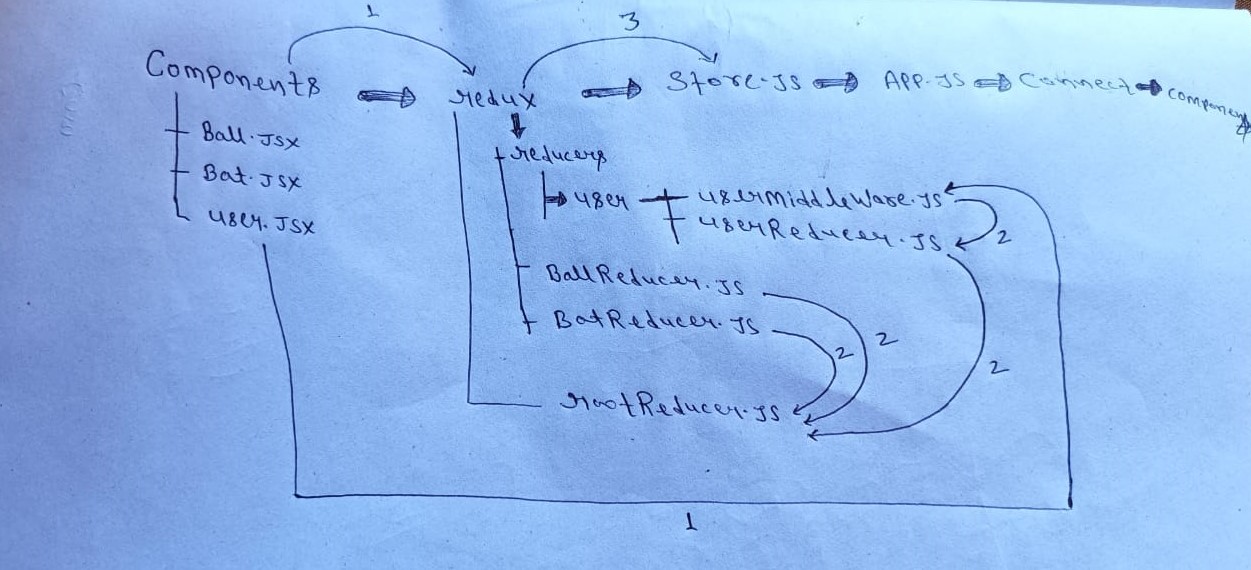 1
3
Components
redux
Store.JS
App.JS
Connect
components
Ball.JSX
Bat.JSX
user.JSX
reducers
user
userMiddleWare.JS
userReducer.JS
2
BallReducer.JS
BatReducer.JS
2
2
2
rootReducer.JS
1